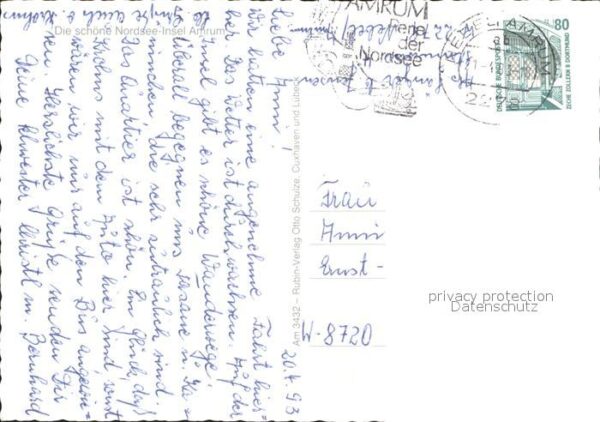 Die schöne Nordsee-Insel Amrum
20.4.93
Liebe Anni!
Wir hatten eine angenehme Fahrt hier-
her. Das Wetter ist durchwachsen. Auf der
Insel gibt es schöne Wanderwege.
Überall begegnen uns Fasane u. Ka-
ninchen, die sehr zutraulich sind.
Das Quartier ist schön. Ein Glück, daß
wir mit dem Auto hier sind, sonst
wären wir nur auf den Bus angewie-
sen. Herzlichste Grüße senden Dir
Deine Schwester Christl m. Bernhard
Am 3432 – Rubin-Verlag Otto Schulze Cuxhaven und Lübeck
AMRUM
Ferien
der
Nordsee
AMRUM
22
80
DEUTSCHE BUNDESPOST
ZECHE ZOLLERN II DORTMUND
Frau
Anni
Ernst-
W-8720
privacy protection
Datenschutz